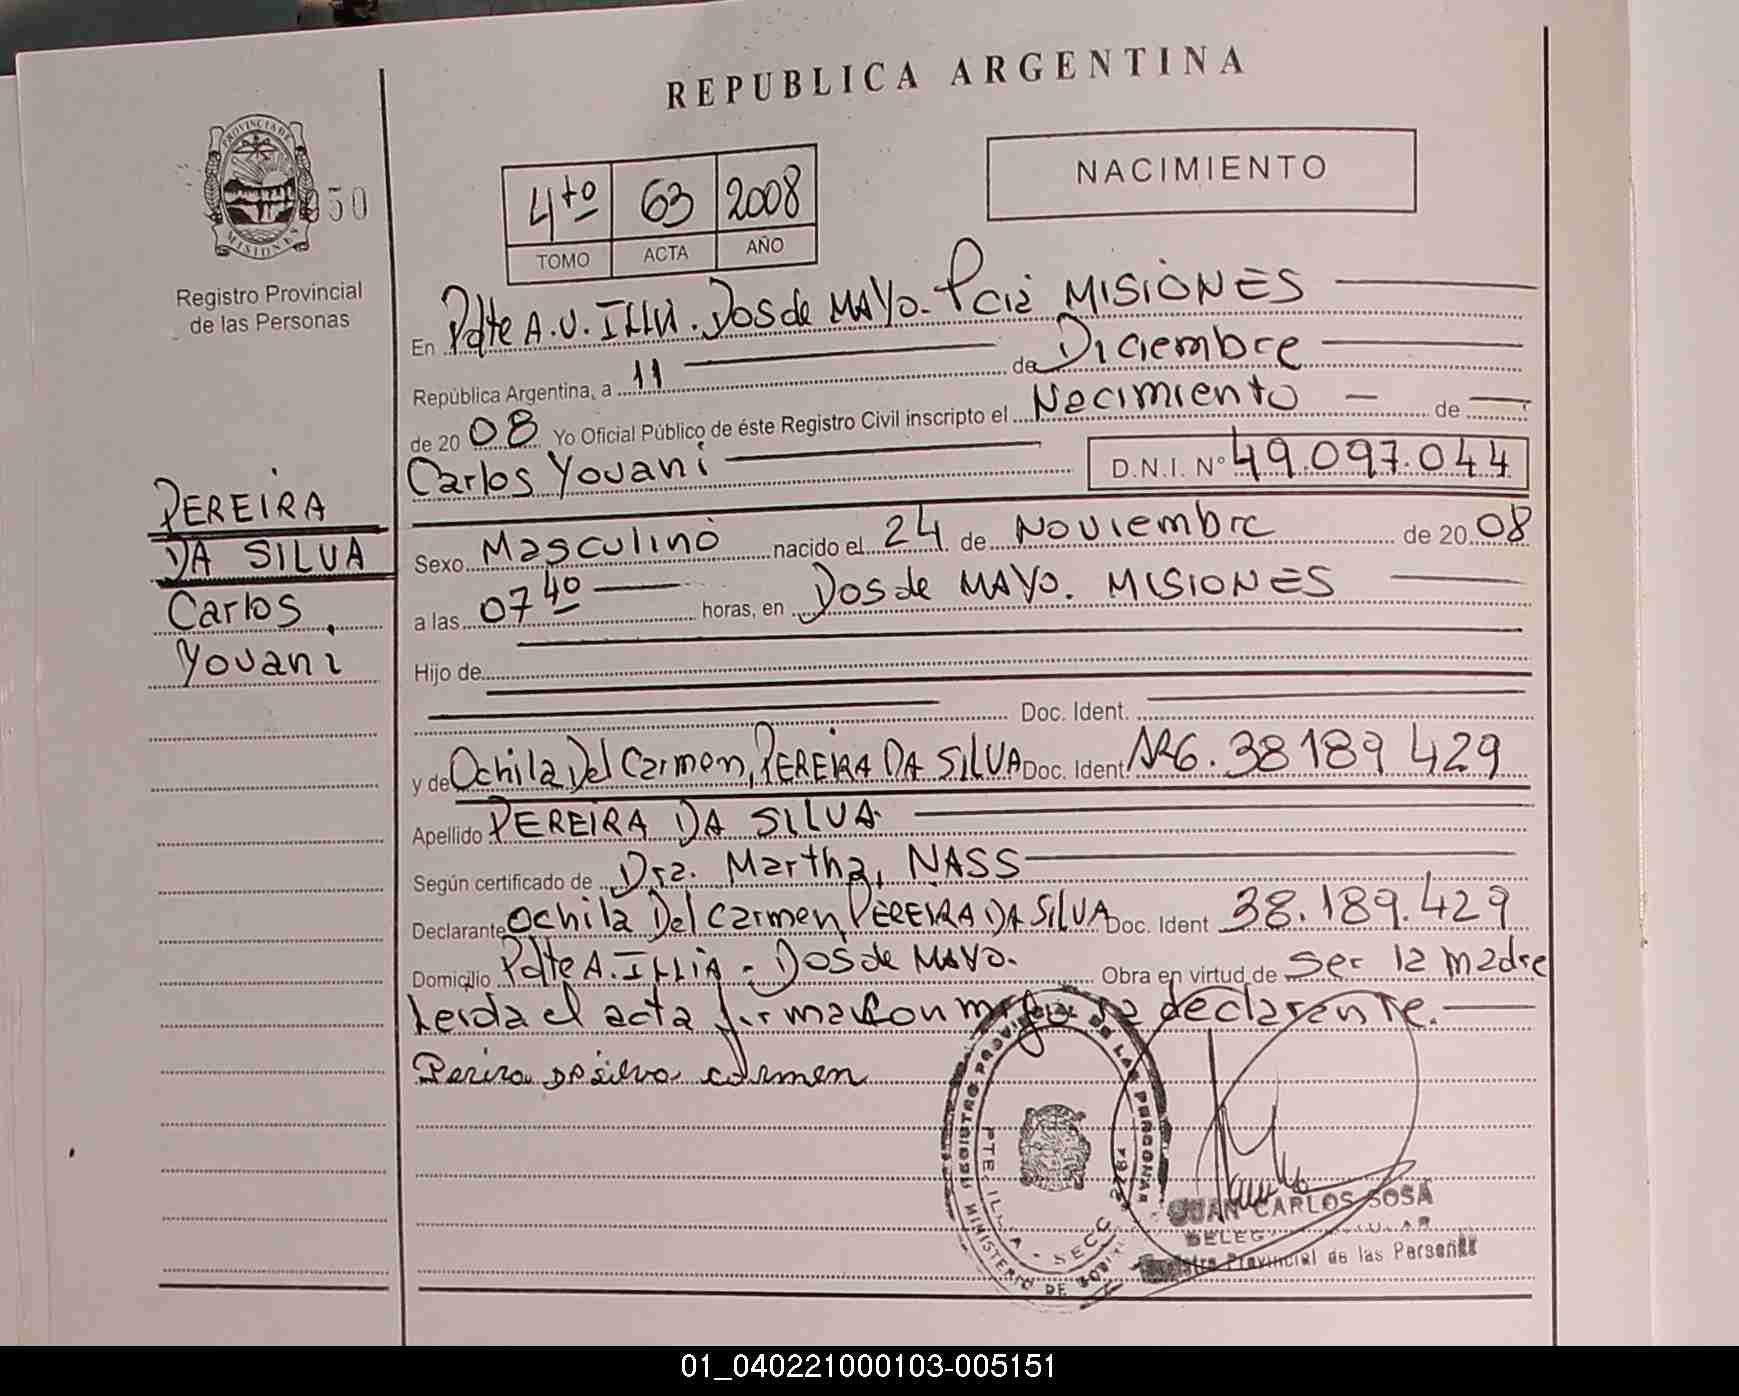 REPUBLICA ARGENTINA
PROVINCIA DE
MISIONES
50
Registro Provincial
de las Personas
NACIMIENTO
4to 63 2008
TOMO ACTA AÑO
En Pdte A.U. ILLIA. Dos de MAYO. Pcia MISIONES
República Argentina, a 11 de Diciembre
de 2008 Yo Oficial Público de éste Registro Civil inscripto el Nacimiento de
Carlos Yovani D.N.I. Nº 49.097.044
PEREIRA
DA SILVA
Carlos
Yovani
Sexo Masculino nacido el 24 de Noviembre de 2008
a las 07 40 horas, en Dos de MAYO. MISIONES
Hijo de
Doc. Ident.
y de Ochila Del Carmen, PEREIRA DA SILVA Doc. Ident. ARG. 38 189 429
Apellido PEREIRA DA SILVA
Según certificado de Dra. Martha, NASS
Declarante Ochila Del Carmen PEREIRA DA SILVA Doc. Ident 38.189.429
Domicilio Pdte A. ILLIA - Dos de MAYO. Obra en virtud de ser la madre
Leida el acta firma con migo la declarente.
Perira Da silva carmen
REGISTRO PROVINCIAL DE LAS PERSONAS
PTE. ILLIA - SECC.
MINISTERIO DE GOBI
JUAN CARLOS SOSA
Registro Provincial de las Personas
01_040221000103-005151